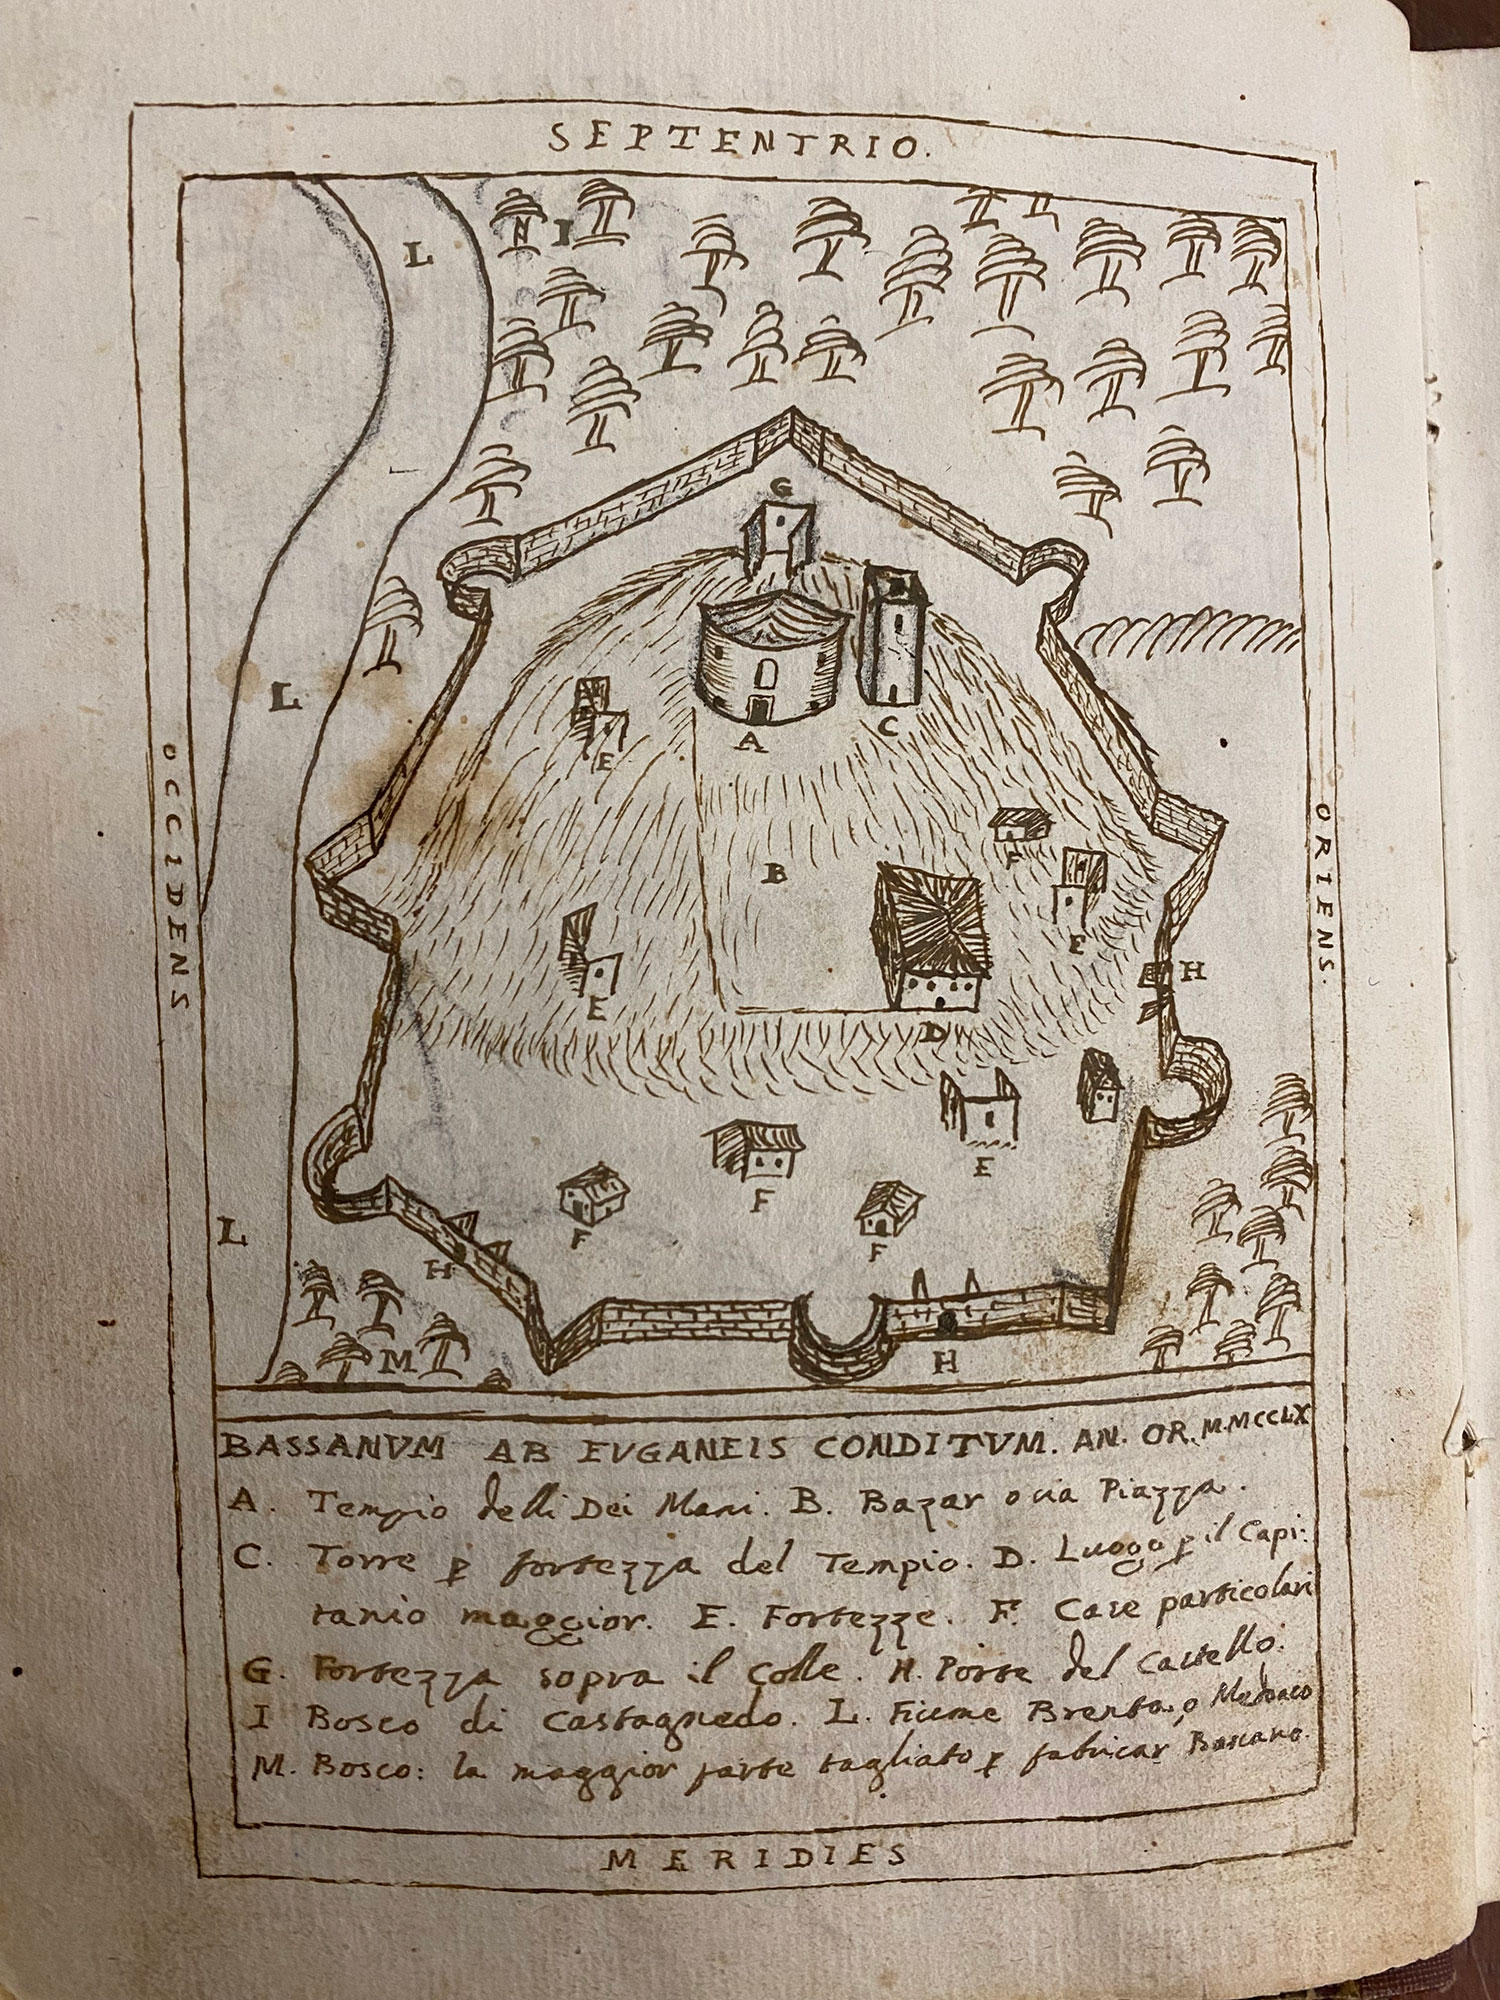 SEPTENTRIO.
L
I
G
L
A
C
E
OCCIDENS
ORIENS.
F
B
E
E
H
D
E
F
F
F
L
H
M
H
BASSANVM AB EVGANEIS CONDITVM. AN. OR. M.MCCLX
A. Tempio delli Dei Mani. B. Bazar ovia Piazza.
C. Torre p fortezza del Tempio. D. Luogo p il Capi:
tanio maggior. E. Fortezze. F. Case particolari
G. Fortezza sopra il Colle. H. Porte del Castello.
I Bosco di Castagnedo. L. Fiume Brenta, o Medoaco
M. Bosco: la maggior parte tagliato p fabricar Bassano.
MERIDIES